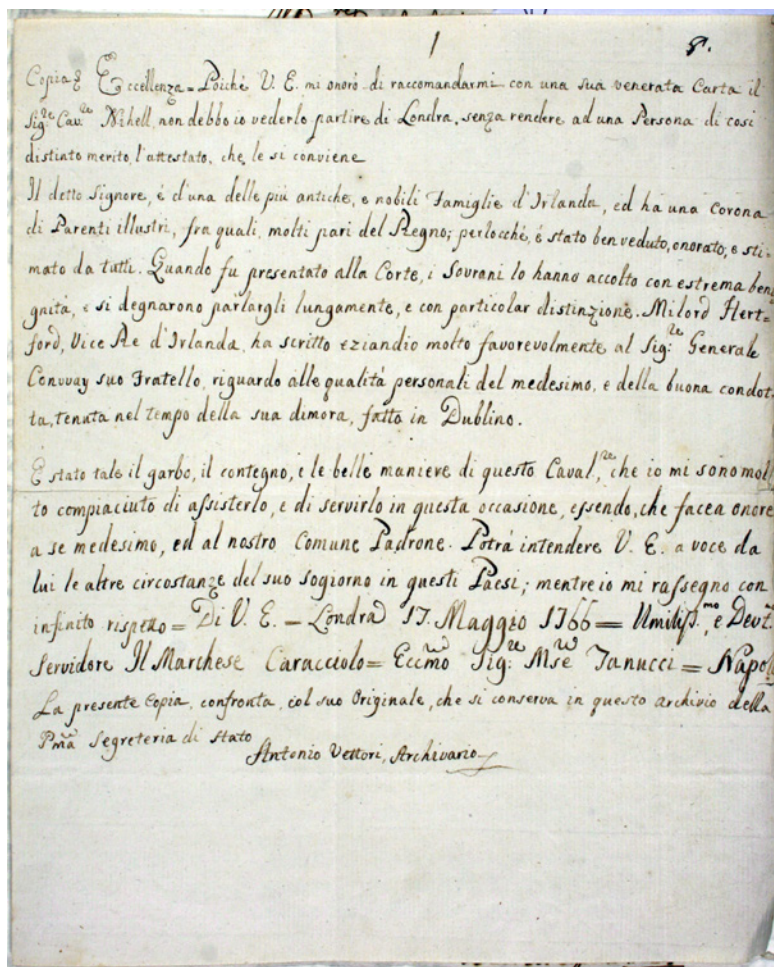 1 8.
Copia = Eccellenza = Poiché V. E. mi onorò di raccomandarmi con una sua venerata Carta il
Sig.re Cav.re Nihell, non debbo io vederlo partire di Londra, senza rendere ad una Persona di così
distinto merito, l'attestato, che le si conviene
Il detto Signore, é d'una delle più antiche, e nobili Famiglie d'Irlanda, ed ha una corona
di Parenti illustri, fra quali, molti pari del Regno; perlocché, é stato ben veduto, onorato, e sti=
mato da tutti. Quando fu presentato alla Corte, i Sovrani lo hanno accolto con estrema beni
gnità, e si degnarono parlargli lungamente, e con particolar distinzione. Milord Hert=
ford, Vice Re d'Irlanda, ha scritto eziandio molto favorevolmente al Sig.re Generale
Convvay suo Fratello, riguardo alle qualità personali del medesimo, e della buona condot=
ta, tenuta nel tempo della sua dimora, fatta in Dublino.
É stato tale il garbo, il contegno, e le belle maniere di questo Caval.re, che io mi sono mol
to compiaciuto di assisterlo, e di servirlo in questa occasione, essendo, che facea onore
a se medesimo, ed al nostro Comune Padrone. Potrà intendere V. E. a voce da
lui le altre circostanze del suo sogiorno in questi Paesi; mentre io mi rassegno con
infinito rispetto = Di V. E. = Londra 17. Maggio 1766 = Umiliss.mo, e Devt.mo
Servidore Il Marchese Caracciolo = Eccmo Sig: Mse Tanucci = Napoli
La presente Copia, confronta, col suo Originale, che si conserva in questo archivio della
Pma Segreteria di Stato
Antonio Vettori, Archivario